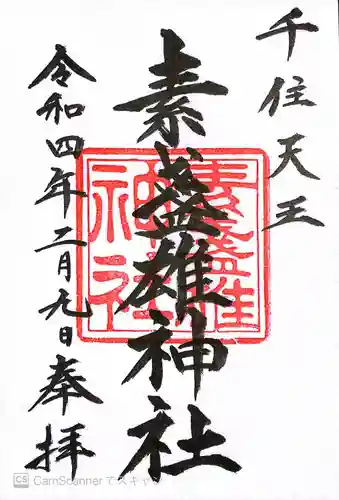 千住天王
素盞雄神社
令和四年二月九日奉拝
素盞雄
神社
CS CamScanner でスキャ